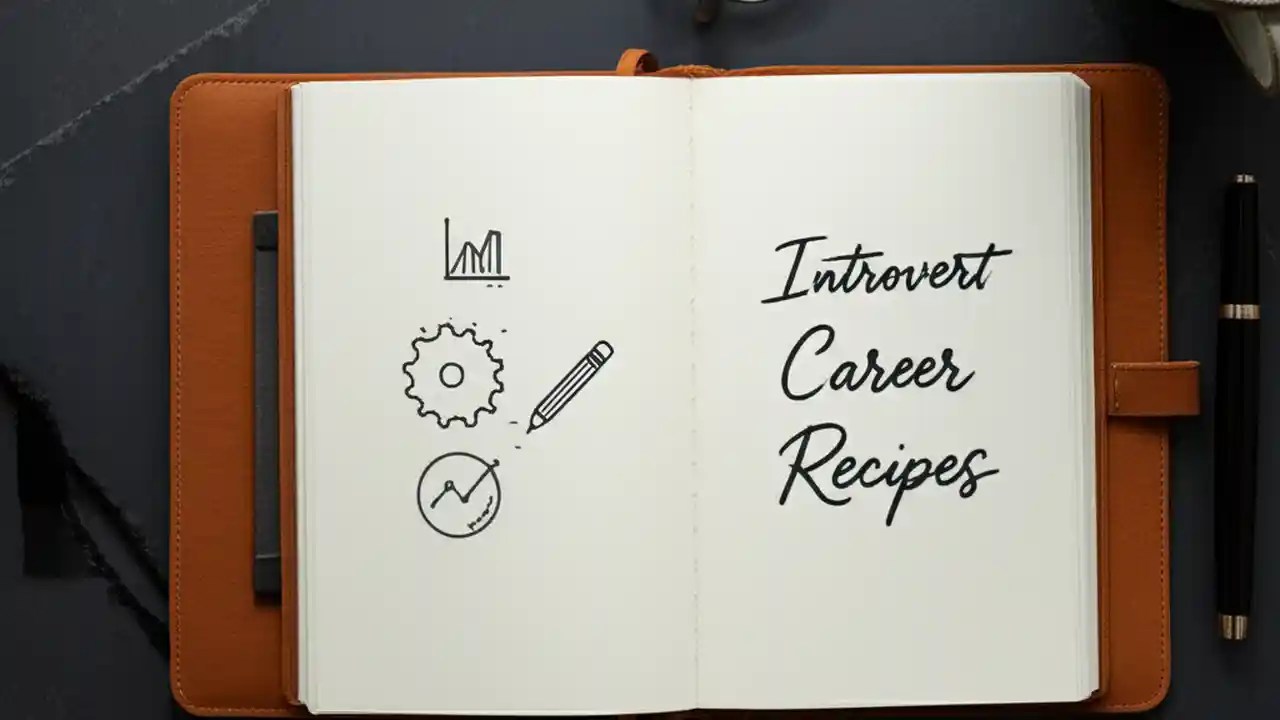 Introvert
Career
Recipes